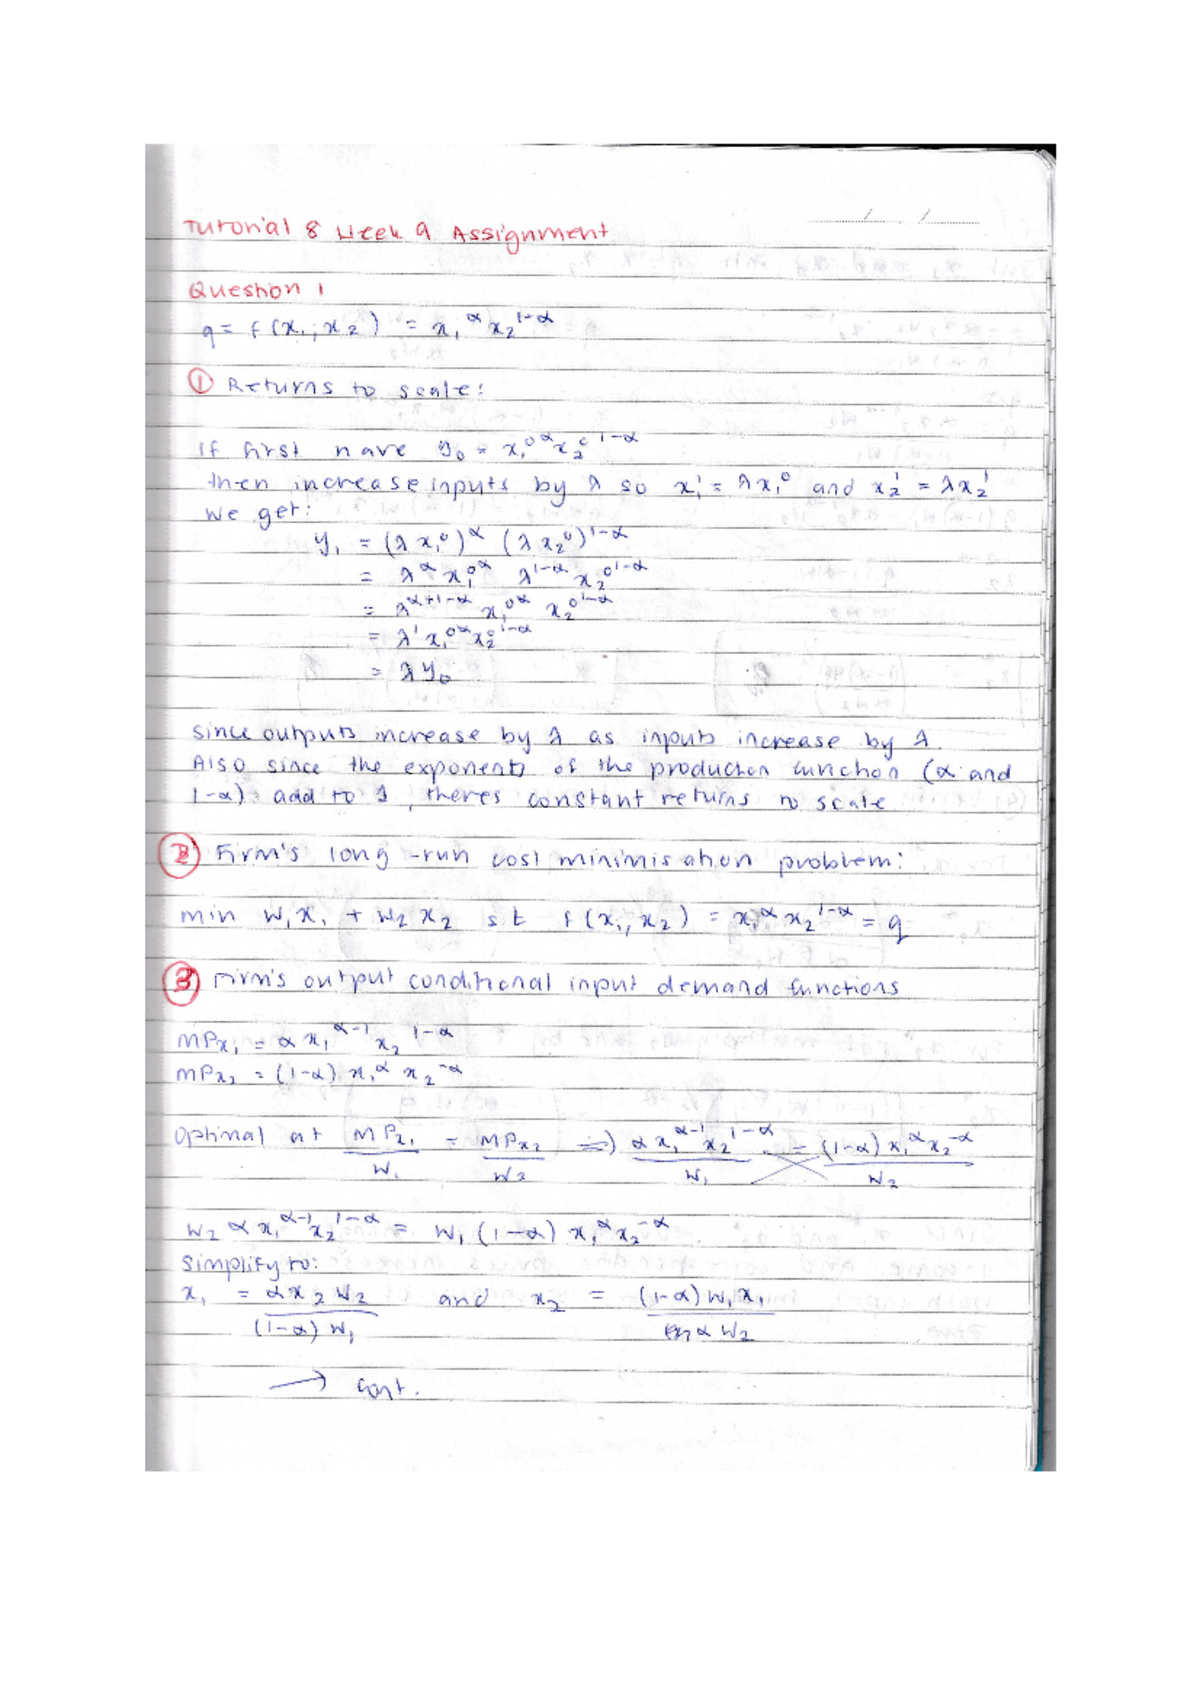 Tutorial 8 Week 9 Assignment
Question 1
q = f(x₁, x₂) = x₁^α x₂^1-α
① Returns to scale:
If first have y₀ = x₁^0α x₂^0 1-α
then increase inputs by λ so x₁' = λx₁⁰ and x₂' = λx₂'
we get:
y₁ = (λx₁⁰)^α (λx₂⁰)^1-α
= λ^α x₁^0α λ^1-α x₂^0 1-α
= λ^α+1-α x₁^0α x₂^0 1-α
= λ' x₁^0α x₂^0 1-α
= λy₀
Since outputs increase by λ as inputs increase by λ.
Also since the exponents of the production function (α and
1-α) add to 1, theres constant returns to scale
② Firm's long-run cost minimisation problem:
min w₁x₁ + w₂x₂ s.t f(x₁, x₂) = x₁^α x₂^1-α = q
③ Firm's output conditional input demand functions
MPx₁ = αx₁^α-1 x₂^1-α
MPx₂ = (1-α) x₁^α x₂^-α
Optimal at MPx₁/w₁ = MPx₂/w₂ => αx₁^α-1 x₂^1-α/w₁ = (1-α) x₁^α x₂^-α/w₂
w₂αx₁^α-1 x₂^1-α = w₁(1-α) x₁^α x₂^-α
Simplify to:
x₁ = αx₂w₂/(1-α)w₁ and x₂ = (1-α)w₁x₁/αw₂
→ cont.